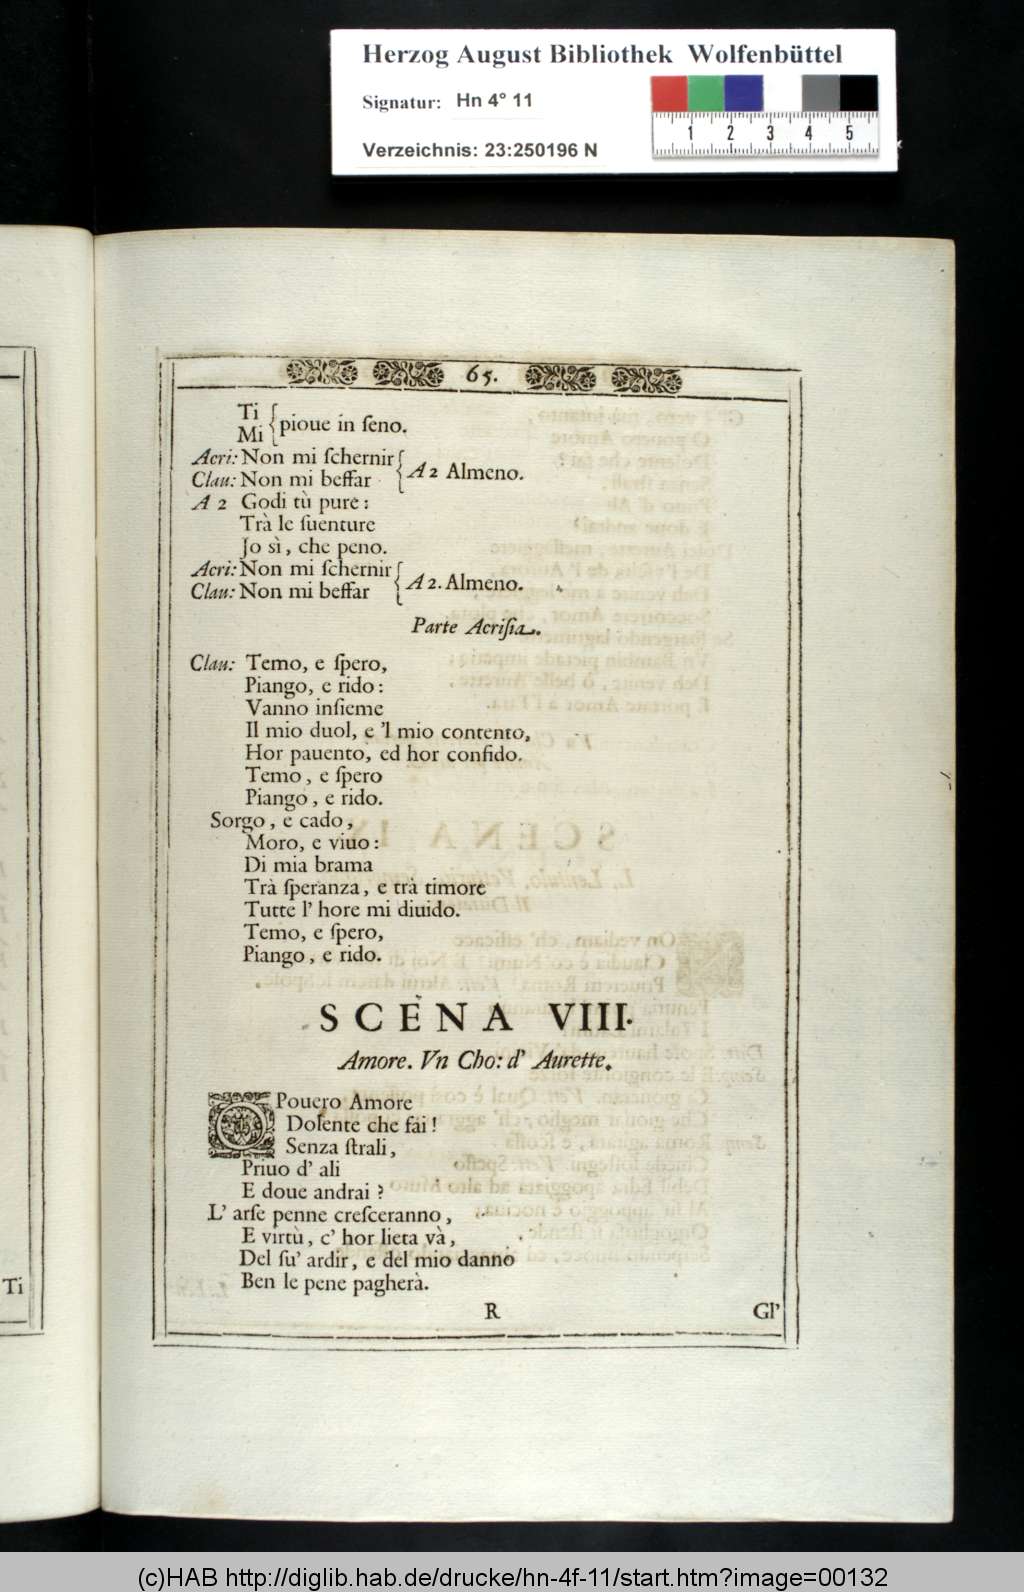 Herzog August Bibliothek Wolfenbüttel
Signatur: Hn 4° 11
Verzeichnis: 23:250196 N
1 2 3 4 5
65.
Ti
Mi
pioue in ſeno.
Acri: Non mi ſchernir
Clau: Non mi beffar
A 2 Almeno.
A 2 Godi tù pure:
Trà le ſuenture
Jo sì, che peno.
Acri: Non mi ſchernir
Clau: Non mi beffar
A 2. Almeno.
Parte Acriſia.
Clau: Temo, e ſpero,
Piango, e rido:
Vanno inſieme
Il mio duol, e 'l mio contento,
Hor pauento, ed hor confido.
Temo, e ſpero
Piango, e rido.
Sorgo, e cado,
Moro, e viuo:
Di mia brama
Trà ſperanza, e trà timore
Tutte l' hore mi diuido.
Temo, e ſpero,
Piango, e rido.
SCENA VIII.
Amore. Vn Cho: d' Aurette.
O Pouero Amore
Dolente che fai!
Senza ſtrali,
Priuo d' ali
E doue andrai?
L' arſe penne creſceranno,
E virtù, c' hor lieta và,
Del ſu' ardir, e del mio danno
Ben le pene pagherà.
R
Gl'
Ti
(c)HAB http://diglib.hab.de/drucke/hn-4f-11/start.htm?image=00132